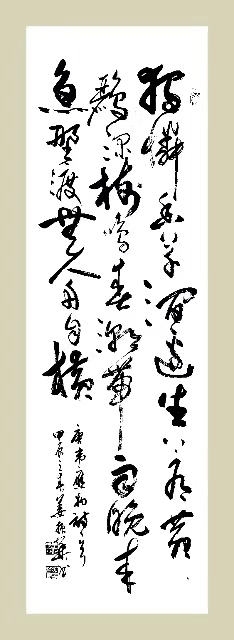 獨憐幽草澗邊生上有黄
鸝深樹鳴春潮帶雨晚来
急野渡無人舟自横
唐韋應物詩
甲辰之